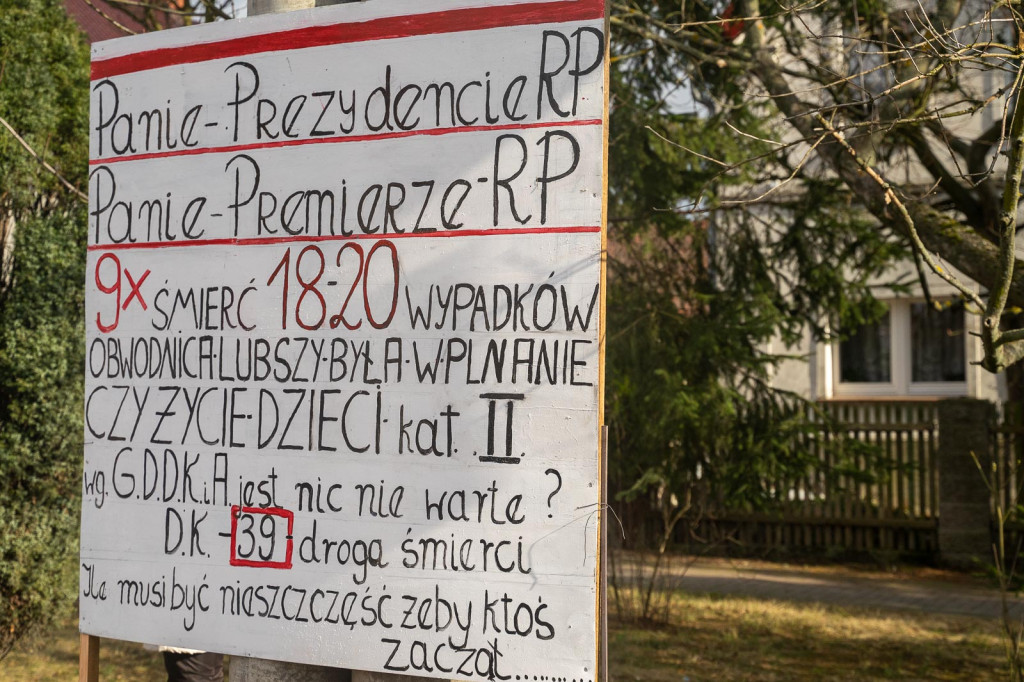 Panie-Prezydencie RP
Panie-Premierze-RP
9x ŚMIERĆ 18-20 WYPADKÓW
OBWODNICA·LUBSZY·BYŁA·W·PLNANIE
CZY ŻYCIE·DZIECI·kat. II
wg. G.D.D.K.i.A. jest nic nie warte ?
D.K. -39- droga śmierci
Ile musi być nieszczczęść żeby ktoś
zaczął...........